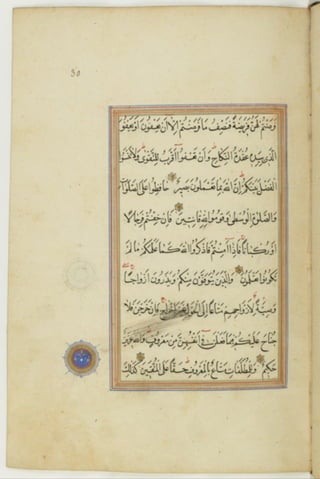 30
فَرَضْتُمْ لَهُنَّ فَرِيضَةً فَنِصْفُ مَا فَرَضْتُمْ اِلَّا اَنْ يَعْفُونَ اَوْ يَعْفُوَا
الَّذِي بِيَدِهِ عُقْدَةُ النِّكَاحِ وَاَنْ تَعْفُوا اَقْرَبُ لِلتَّقْوٰى وَلَا تَنْسَوُا
الْفَضْلَ بَيْنَكُمْ اِنَّ اللهَ بِمَا تَعْمَلُونَ بَصِيرٌ حَافِظُوا عَلَى الصَّلَوَاتِ
وَالصَّلٰوةِ الْوُسْطٰى وَقُومُوا لِلّٰهِ قَانِتِينَ فَاِنْ خِفْتُمْ فَرِجَالًا
اَوْ رُكْبَانًا فَاِذَا اَمِنْتُمْ فَاذْكُرُوا اللهَ كَمَا عَلَّمَكُمْ مَا لَمْ
تَكُونُوا تَعْلَمُونَ وَالَّذِينَ يُتَوَفَّوْنَ مِنْكُمْ وَيَذَرُونَ اَزْوَاجًا
وَصِيَّةً لِاَزْوَاجِهِمْ مَتَاعًا اِلَى الْحَوْلِ غَيْرَ اِخْرَاجٍ فَاِنْ خَرَجْنَ فَلَا
جُنَاحَ عَلَيْكُمْ فِي مَا فَعَلْنَ فِي اَنْفُسِهِنَّ مِنْ مَعْرُوفٍ وَاللهُ عَزِيزٌ
حَكِيمٌ وَلِلْمُطَلَّقَاتِ مَتَاعٌ بِالْمَعْرُوفِ حَقًّا عَلَى الْمُتَّقِينَ كَذٰلِكَ